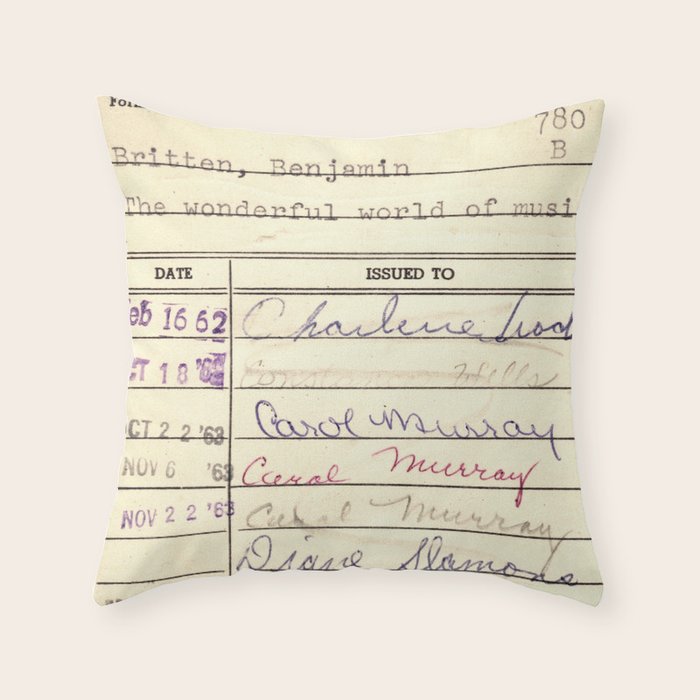 780
B
Britten, Benjamin
The wonderful world of musi
DATE ISSUED TO
eb 16 62 Charlene
CT 18 '6 Hells
OCT 22 '63 Carol Murray
NOV 6 '63 Carol Murray
NOV 22 '63 Carol Murray
Diane Slamons